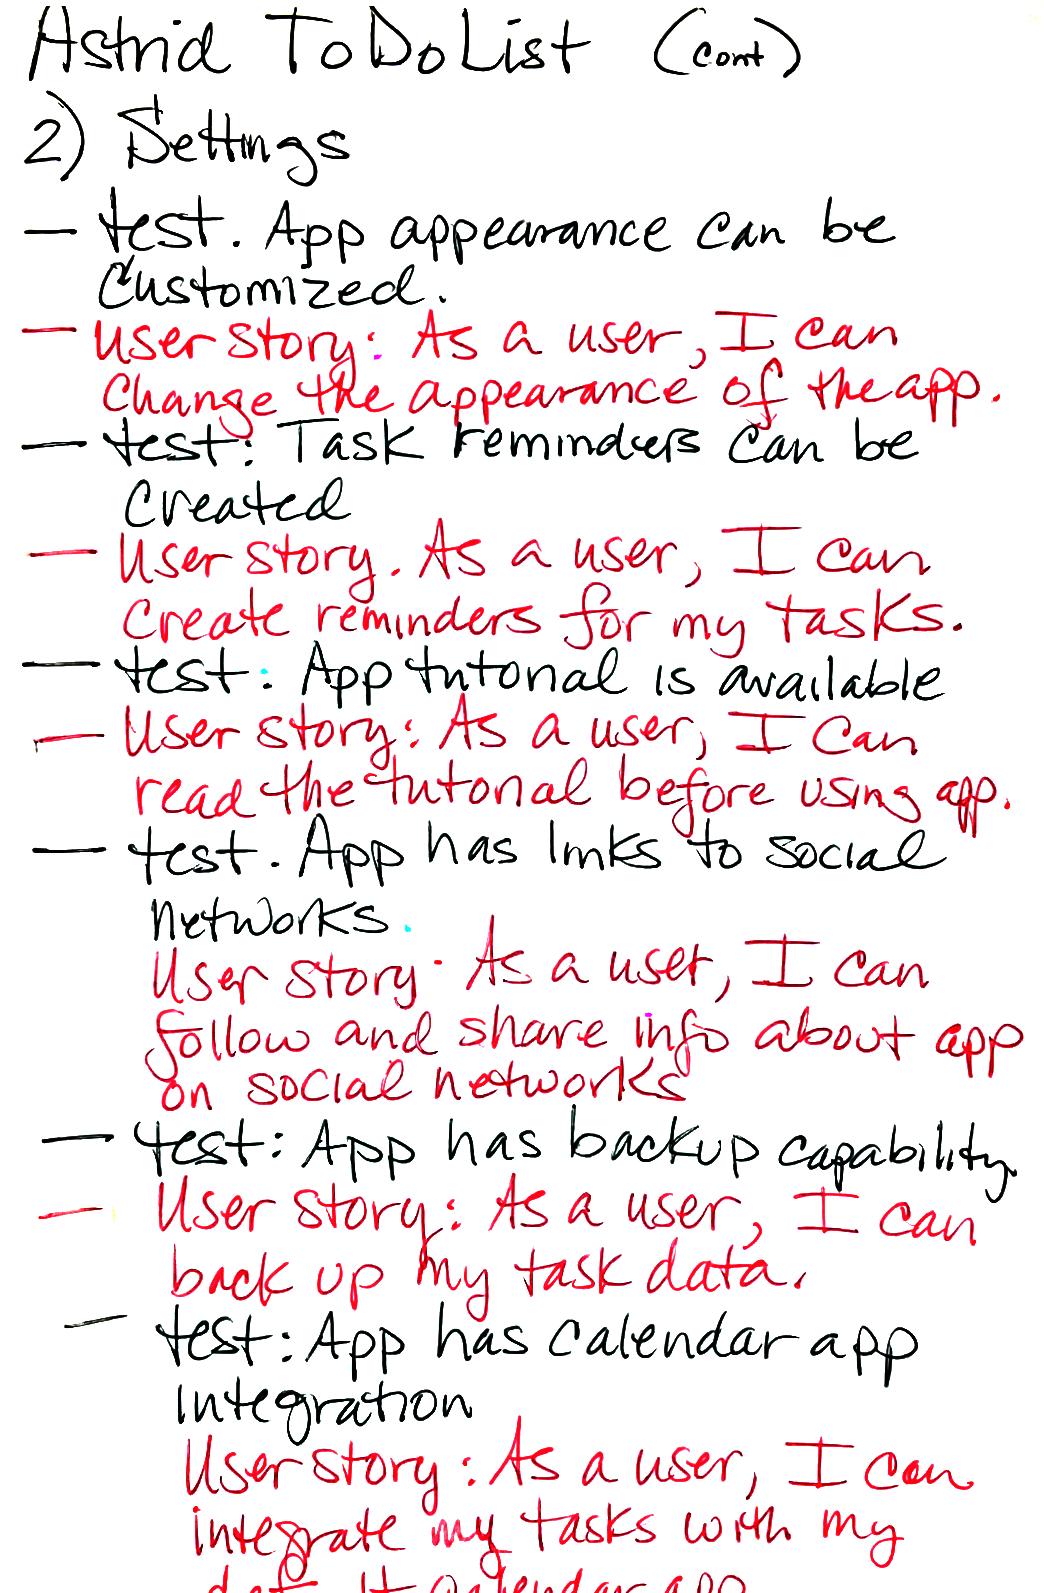 Astrid ToDo List (cont)
2) Settings
— test. App appearance can be
customized.
— User story: As a user, I can
change the appearance of the app.
— test: Task reminders can be
created
— User story. As a user, I can
create reminders for my tasks.
— test: App tutorial is available
— User story: As a user, I can
read the tutorial before using app.
— test. App has links to social
networks.
User story. As a user, I can
follow and share info about app
on social networks
— test: App has backup capability.
— User story: As a user, I can
back up my task data.
— test: App has calendar app
integration
User story: As a user, I can
integrate my tasks with my
calendar app